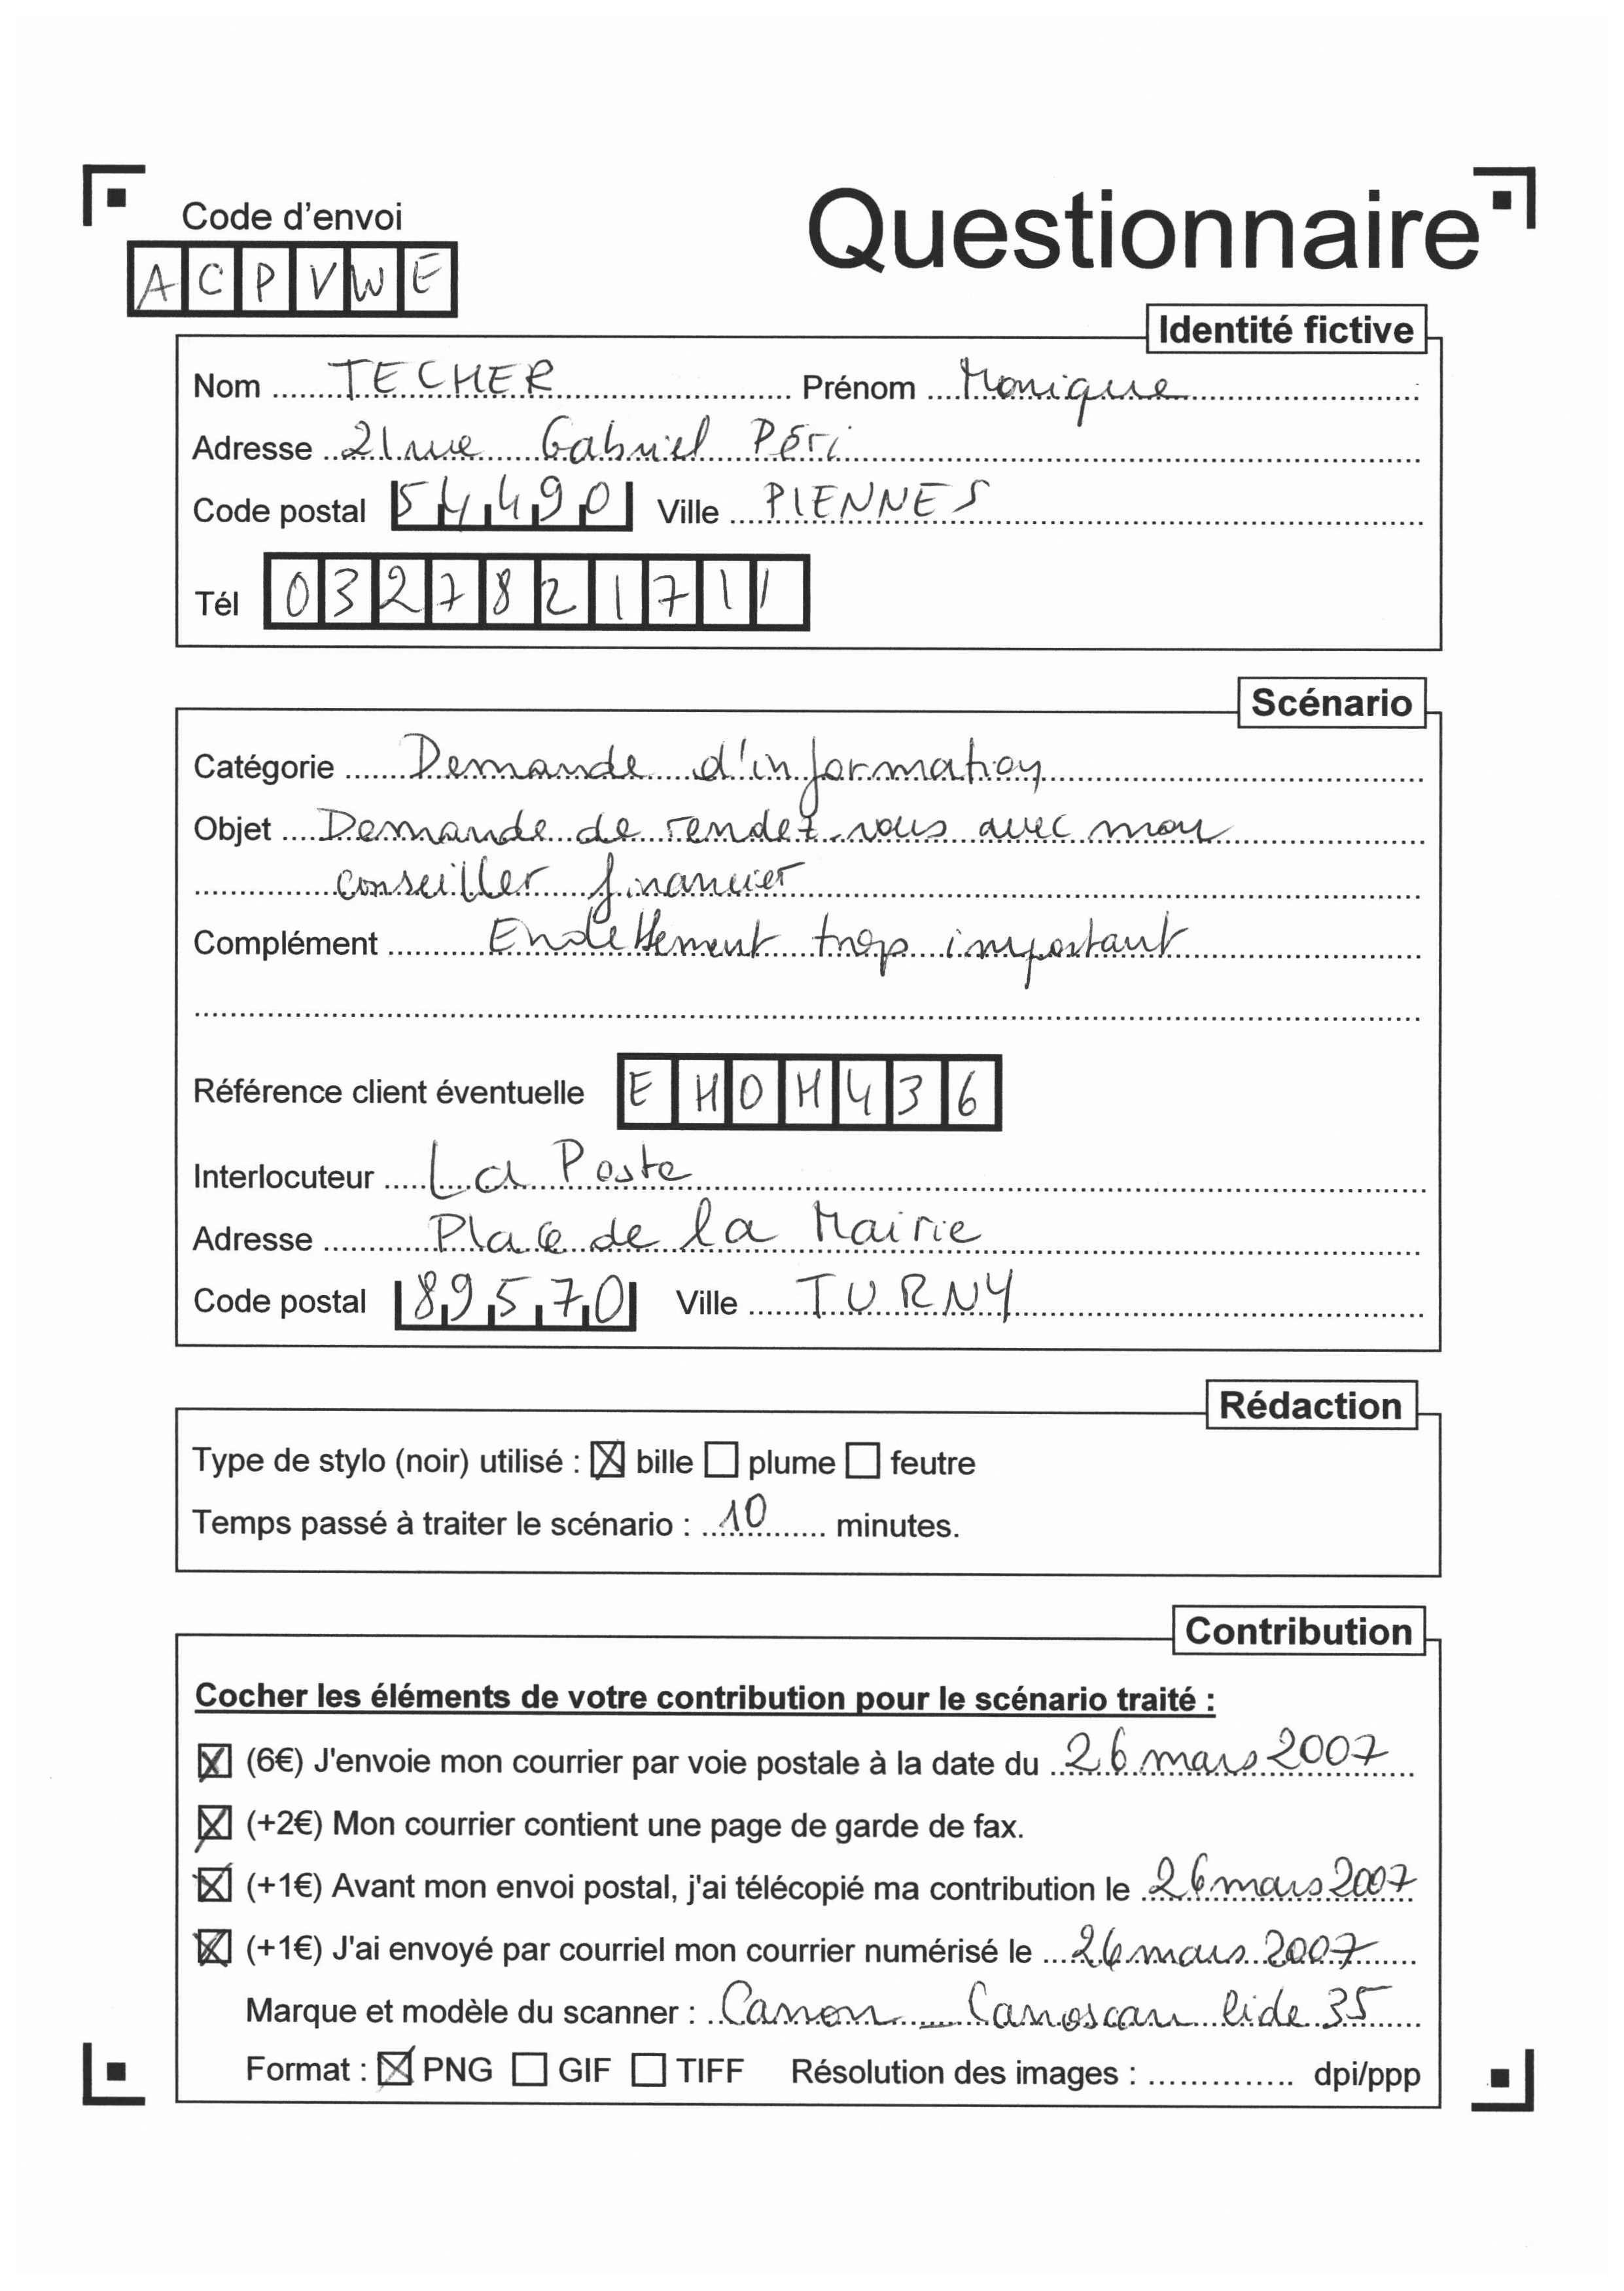 Code d'envoi
Questionnaire
ACPVWE
Identité fictive
Nom TECHER Prénom Monique
Adresse 21 rue Gabriel Péri
Code postal 54490 Ville PIENNES
Tél 0327821711
Scénario
Catégorie Demande d'information
Objet Demande de rendez-vous avec mon
conseiller financier
Complément Endettement trop important
Référence client éventuelle EHOH436
Interlocuteur La Poste
Adresse Place de la Mairie
Code postal 89570 Ville TURNY
Rédaction
Type de stylo (noir) utilisé : ☒ bille ☐ plume ☐ feutre
Temps passé à traiter le scénario : 10 minutes.
Contribution
Cocher les éléments de votre contribution pour le scénario traité :
☒ (6€) J'envoie mon courrier par voie postale à la date du 26 mars 2007
☒ (+2€) Mon courrier contient une page de garde de fax.
☒ (+1€) Avant mon envoi postal, j'ai télécopié ma contribution le 26 mars 2007
☒ (+1€) J'ai envoyé par courriel mon courrier numérisé le 26 mars 2007
Marque et modèle du scanner : Canon _ Canoscan lide 35
Format : ☒ PNG ☐ GIF ☐ TIFF Résolution des images : .............. dpi/ppp